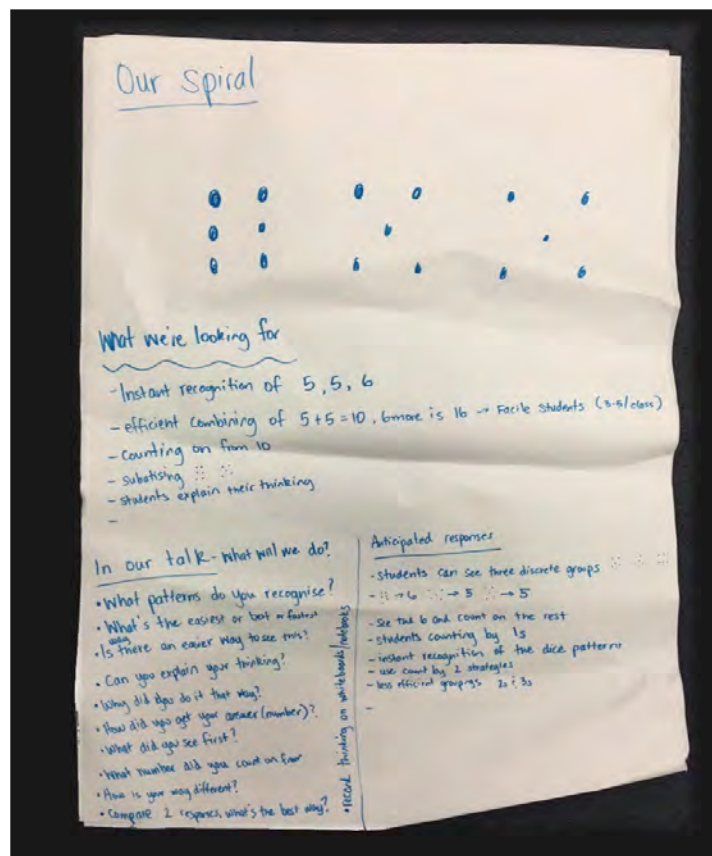 Our Spiral
What we're looking for
- Instant recognition of 5, 5, 6
- efficient combining of 5+5=10, 6 more is 16 → Facile students (3-5/class)
- Counting on from 10
- subatising
- students explain their thinking
-
In our talk - what will we do?
• What patterns do you recognise?
• What's the easiest or best or fastest way
• Is there an easier way to see this?
• Can you explain your thinking?
• Why did you do it that way?
• How did you get your answer (number)?
• What did you see first?
• What number did you count on from
• How is your way different?
• Compare 2 responses, what's the best way?
• record thinking on whiteboards/notebooks
Anticipated responses
- students can see three discrete groups
- → 6 → 5 → 5
- see the 6 and count on the rest
- students counting by 1s
- instant recognition of the dice patterns
- use count by 2 strategies
- less efficient groupings 2s & 3s
-